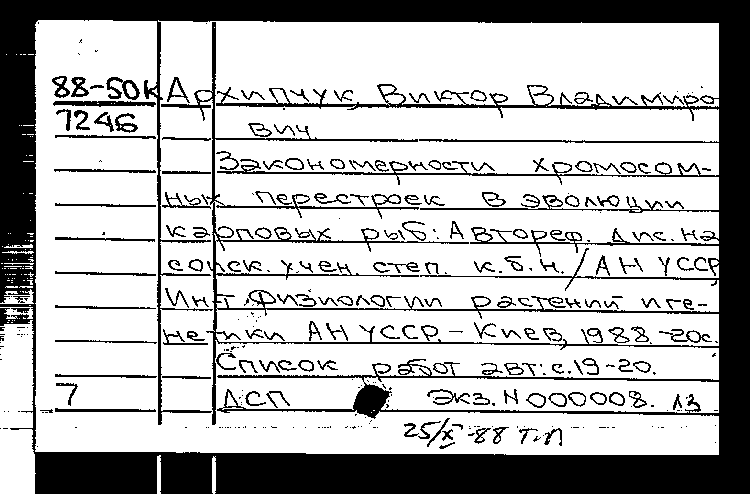 88-50к Архипчук, Виктор Владимиро
7246 вич.
Закономерности хромосом-
ных перестроек в эволюции
карповых рыб: Автореф. дис. на
соиск. учен. степ. к.б.н. / АН УССР,
Ин-т физиологии растений и ге-
нетики АН УССР. - Киев, 1988. -20с.
Список работ авт.: с.19-20.
7 ДСП Экз. N 000008.
25/X -88